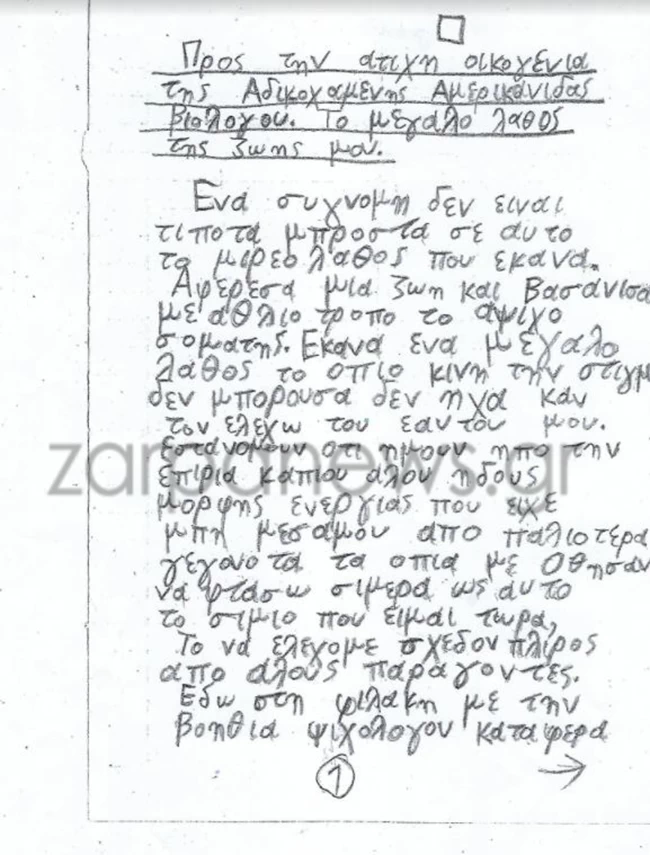 Προς την ατιχη οικογένια
της Αδικοχαμένης Αμερικάνιδας
βιολογου. Το μεγάλο λαθος
της ζωης μου.
Ενα συγνομη δεν ειναι
τιποτα μπροστα σε αυτο
το μιρεο λαθος που εκανα.
Αφερεσα μια ζωη και βασάνισα
με αθλιο τροπο το αψιχο
σοματης. Εκανα ενα μεγαλο
λαθος το οπιο κινη την στιγμ
δεν μπορουσα δεν ηχα καν
τον ελεχω του εαυτου μου.
εστανομουν οτι ημουν ηπο την
επιρια καπιου αλου ηδους
μορφης ενεργιας που ειχε
μπη μεσαμου απο παλιοτερα
γεγονοτα τα οπια με οθησαν
να φτασω σιμερα ως αυτο
το σιμιο που ειμαι τωρα,
Το να ελεγομε σχεδον πλιρος
απο αλους παραγοντες.
Εδω στη φιλακη με την
βοηθια ψιχολογου καταφερα
1 →
zarpanews.gr